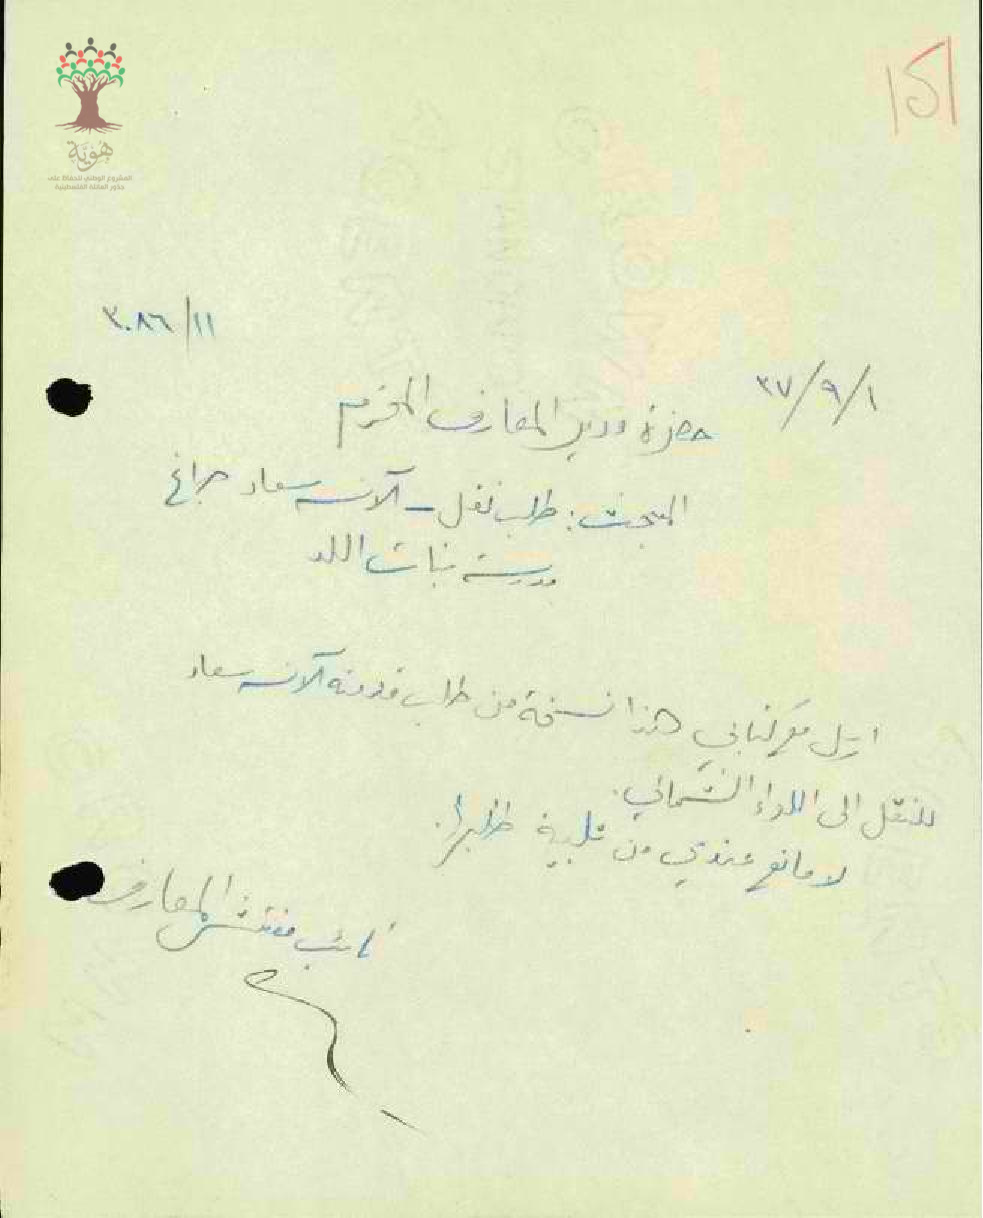 هوية
المشروع الوطني للحفاظ على
جذور العائلة الفلسطينية
٣٠٨٦/١١
٣٧/٩/١
حضرة مدير المعارف المحترم
المبحث: طلب نقل - الآنسة سعاد جراغ
مدرسة بنات اللد
ارسل مع كتابي هذا نسخة من طلب قدمته الآنسة سعاد
للنقل الى اللواء الشمالي.
لا مانع عندي من تلبية طلبها.
نائب مفتش المعارف